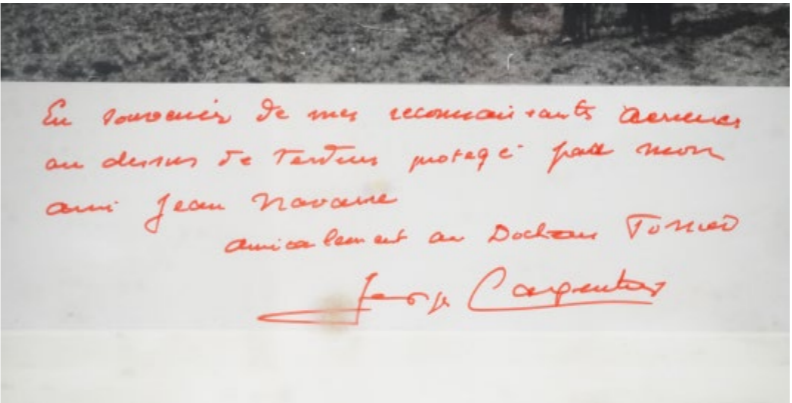 En souvenir de mes reconnaissants aeriennes
au dessus de Verdun protegé par mon
ami Jean Navarre
amicalement au Docteur
Georges Carpentier